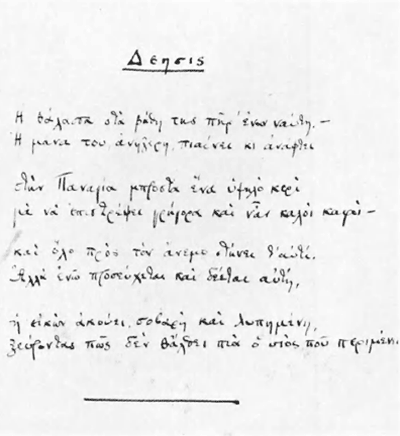 Δέησις
Η θάλασσα στα βάθη της πήρ' έναν ναύτη. –
Η μάνα του, ανήξερη, πιαίνει κι ανάφτει
στην Παναγία μπροστά ένα υψηλό κερί
για να επιστρέψει γρήγορα και ναν' καλοί καιροί –
και όλο προς τον άνεμο στήνει τ' αυτί.
Αλλά ενώ προσεύχεται και δέεται αυτή,
η εικών ακούει, σοβαρή και λυπημένη,
ξεύροντας πως δεν θάλθει πια ο υιός που περιμένει.